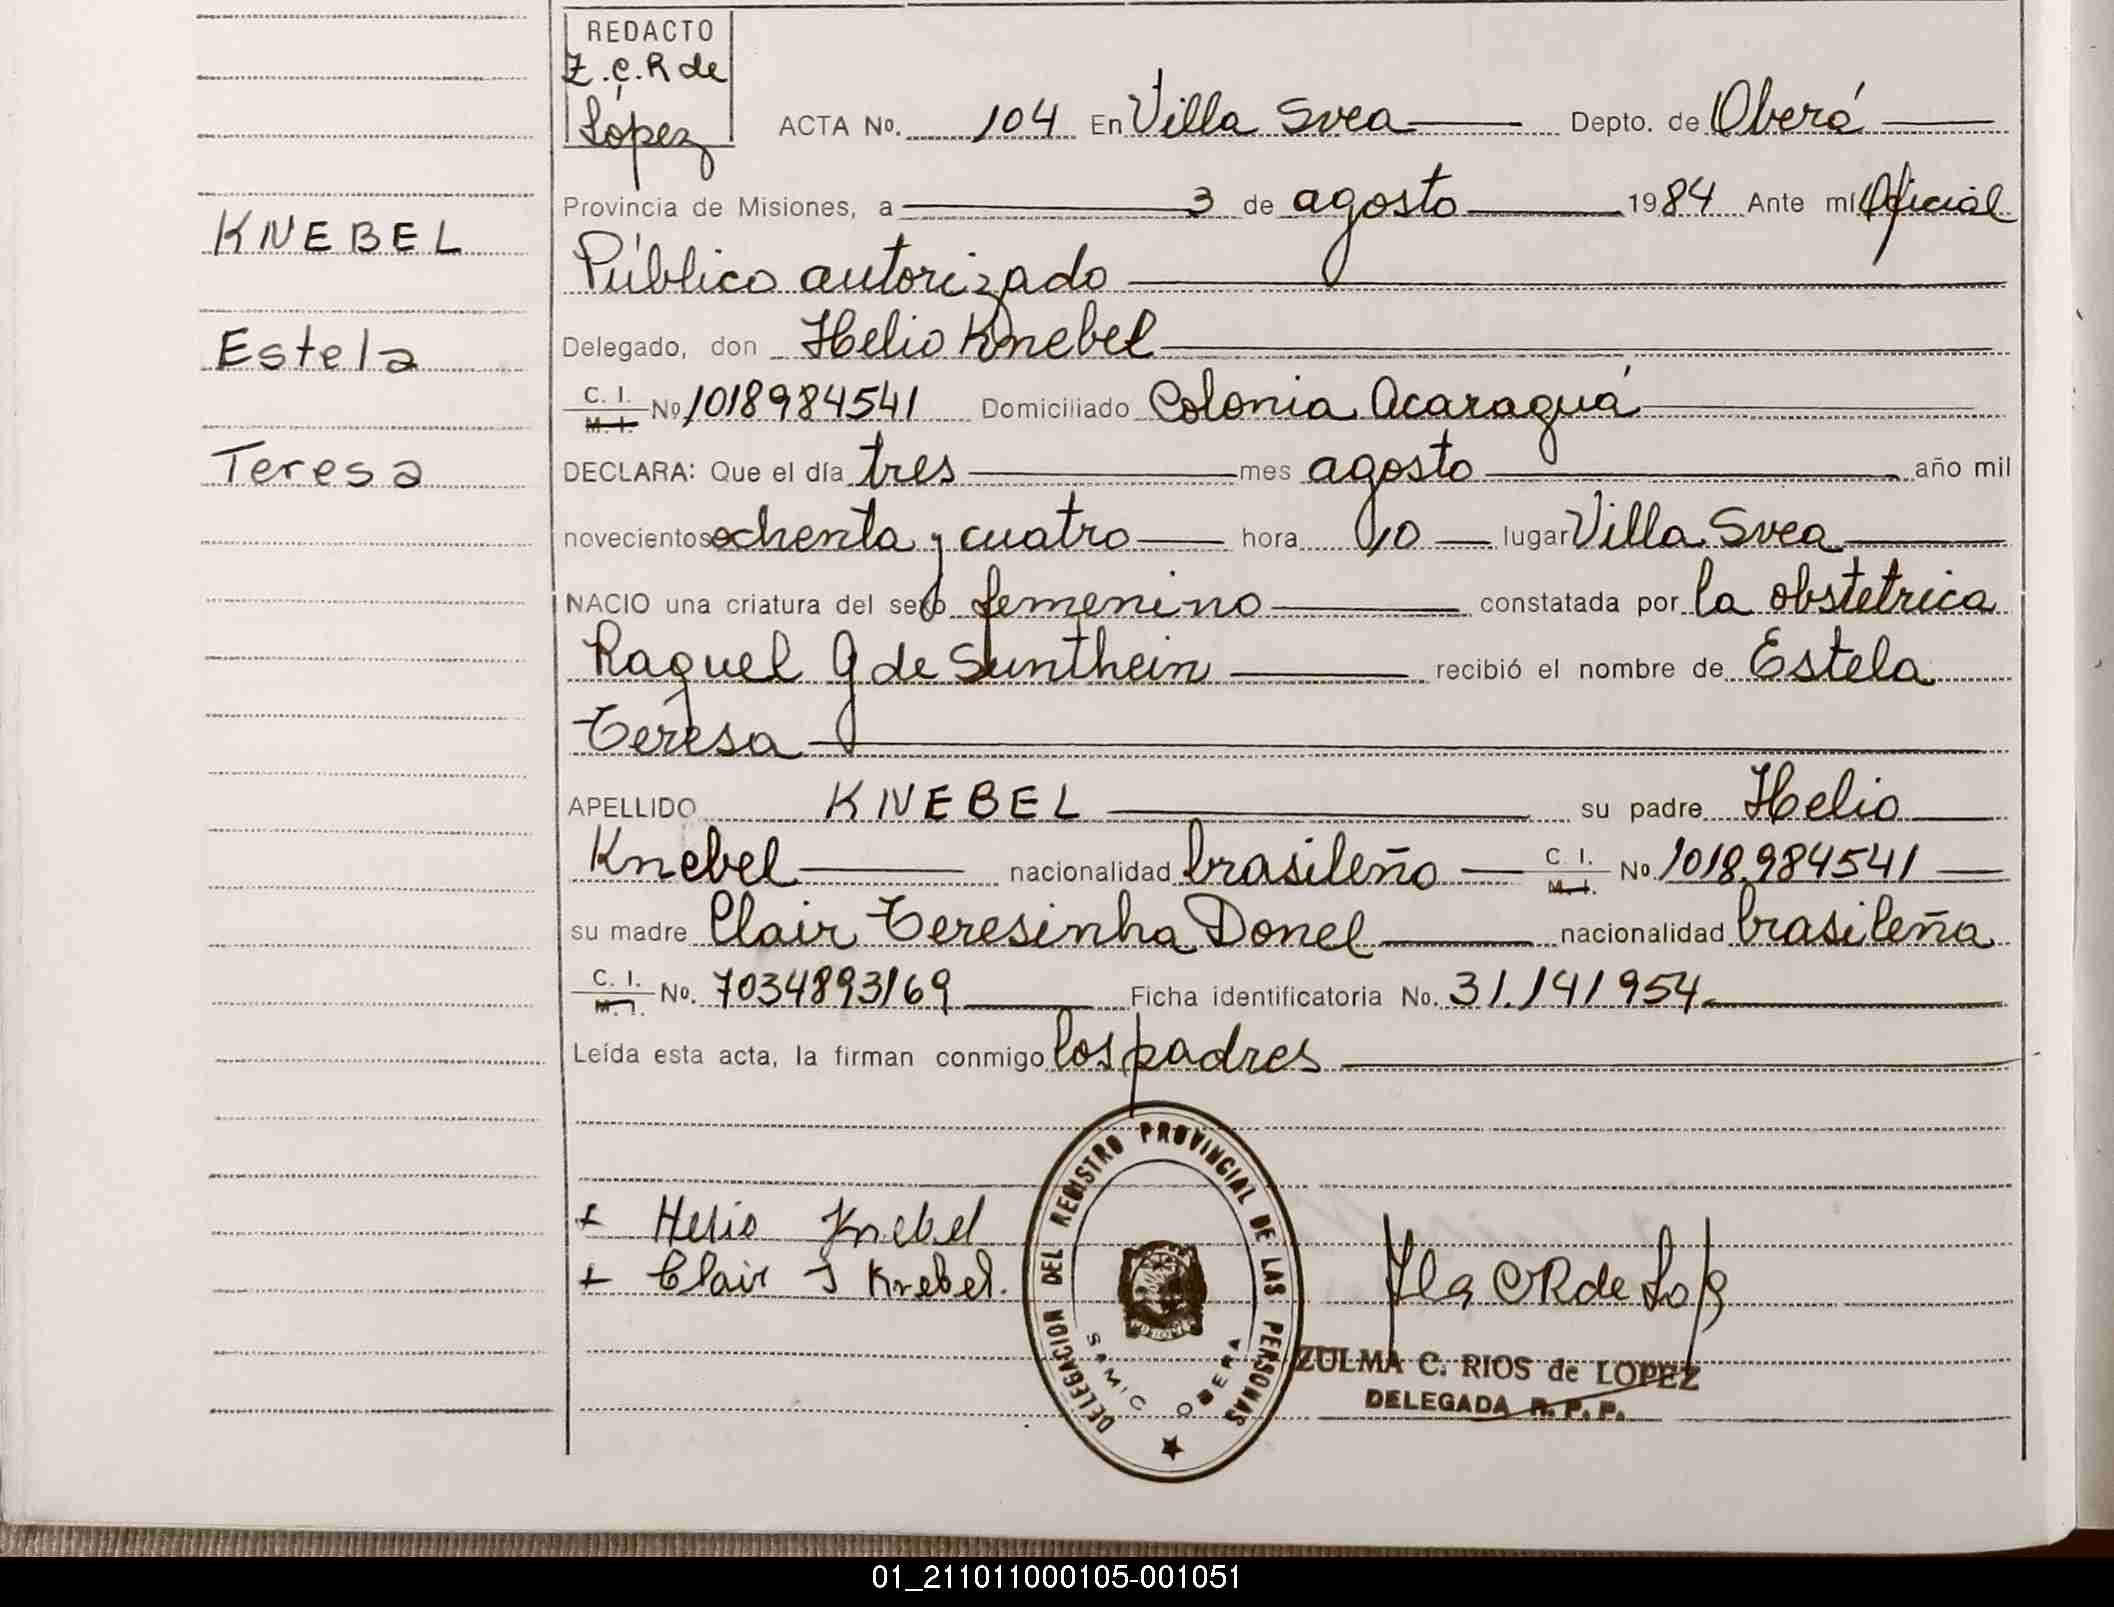 REDACTO
Z.C.R de
López
ACTA No. 104 En Villa Svea Depto. de Oberá
Provincia de Misiones, a 3 de agosto 1984 Ante mí Oficial
Público autorizado
Delegado, don Helio Knebel
C. I. M. I. No 1018984541 Domiciliado Colonia Acaraguá
DECLARA: Que el día tres mes agosto año mil
novecientos ochenta y cuatro hora 10 lugar Villa Svea
NACIO una criatura del sexo femenino constatada por la obstetrica
Raquel G de Sunthein recibió el nombre de Estela
Teresa
APELLIDO KNEBEL su padre Helio
Knebel nacionalidad brasileño C. I. M. I. No. 1018.984541
su madre Clair Teresinha Donel nacionalidad brasileña
C. I. M. I. No. 7034893169 Ficha identificatoria No. 31.141954
Leída esta acta, la firman conmigo los padres
KNEBEL
Estela
Teresa
+ Helio Knebel
+ Clair T Knebel.
DELEGACION DEL REGISTRO PROVINCIAL DE LAS PERSONAS
SAMIC OBERA
ZULMA C. RIOS de LOPEZ
DELEGADA R. P. P.
01_211011000105-001051